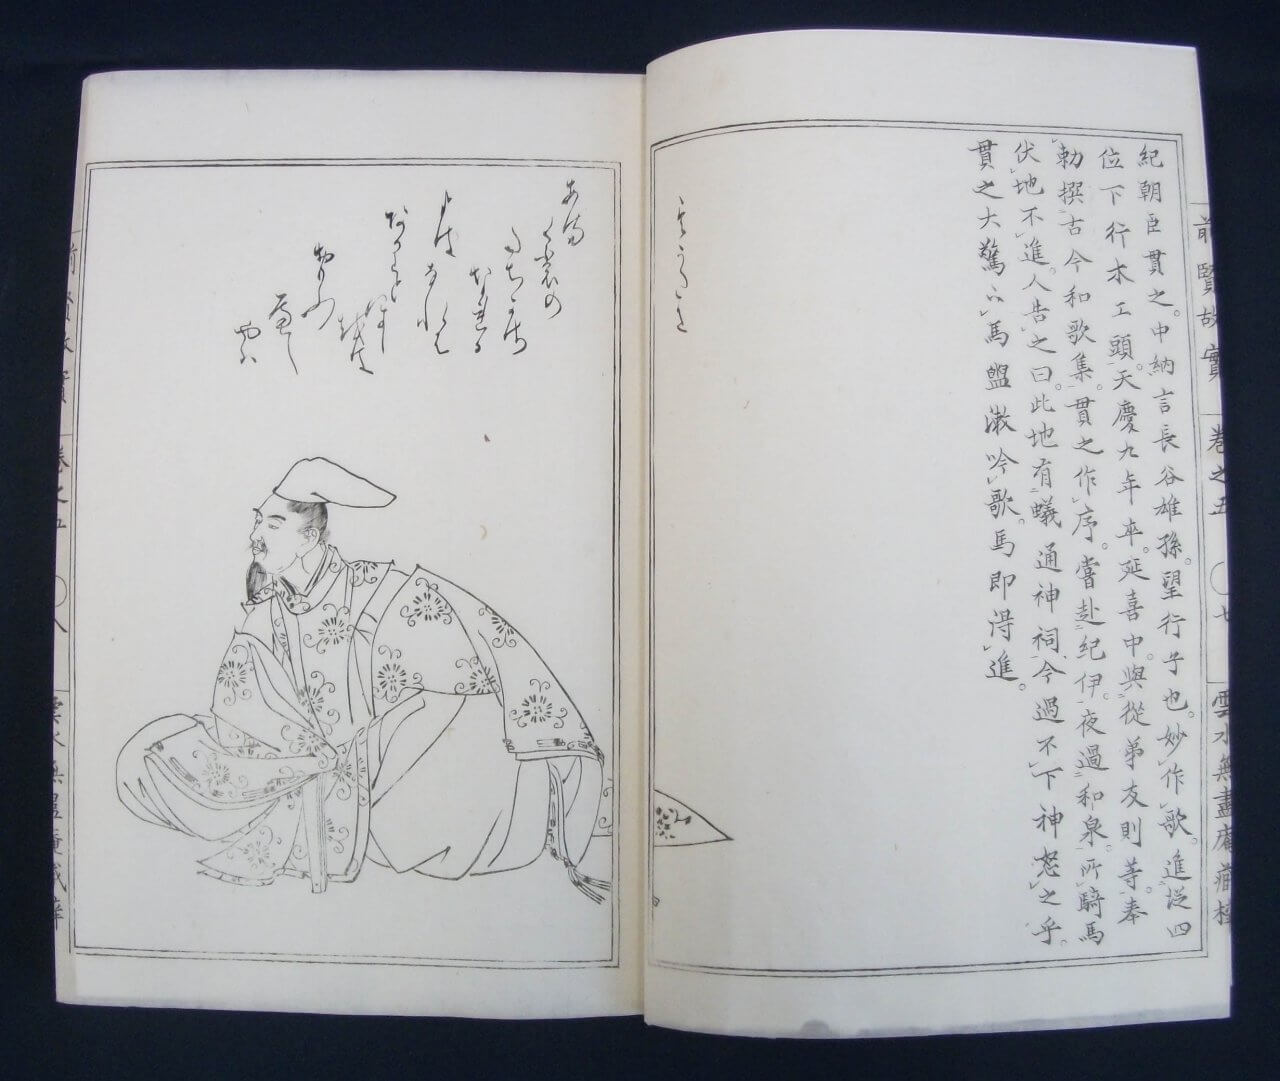 前賢故實 卷之五 〇七 雲水無盡庵藏梓
紀朝臣貫之。中納言長谷雄孫。望行子也。妙作歌。進從四
位下行木工頭。天慶九年卒。延喜中。與從弟友則等。奉
勅撰古今和歌集。貫之作序。嘗赴紀伊。夜過和泉。所騎馬
伏地不進。人告之曰。此地有蟻通神祠。今過不下神怒之乎。
貫之大驚。下馬盥漱吟歌。馬即得進。
あま
く裳の
たちかさ
なれる
よはなれば
おもふ
べし
やは
前賢故實 卷之五 〇八 雲水無盡庵藏梓